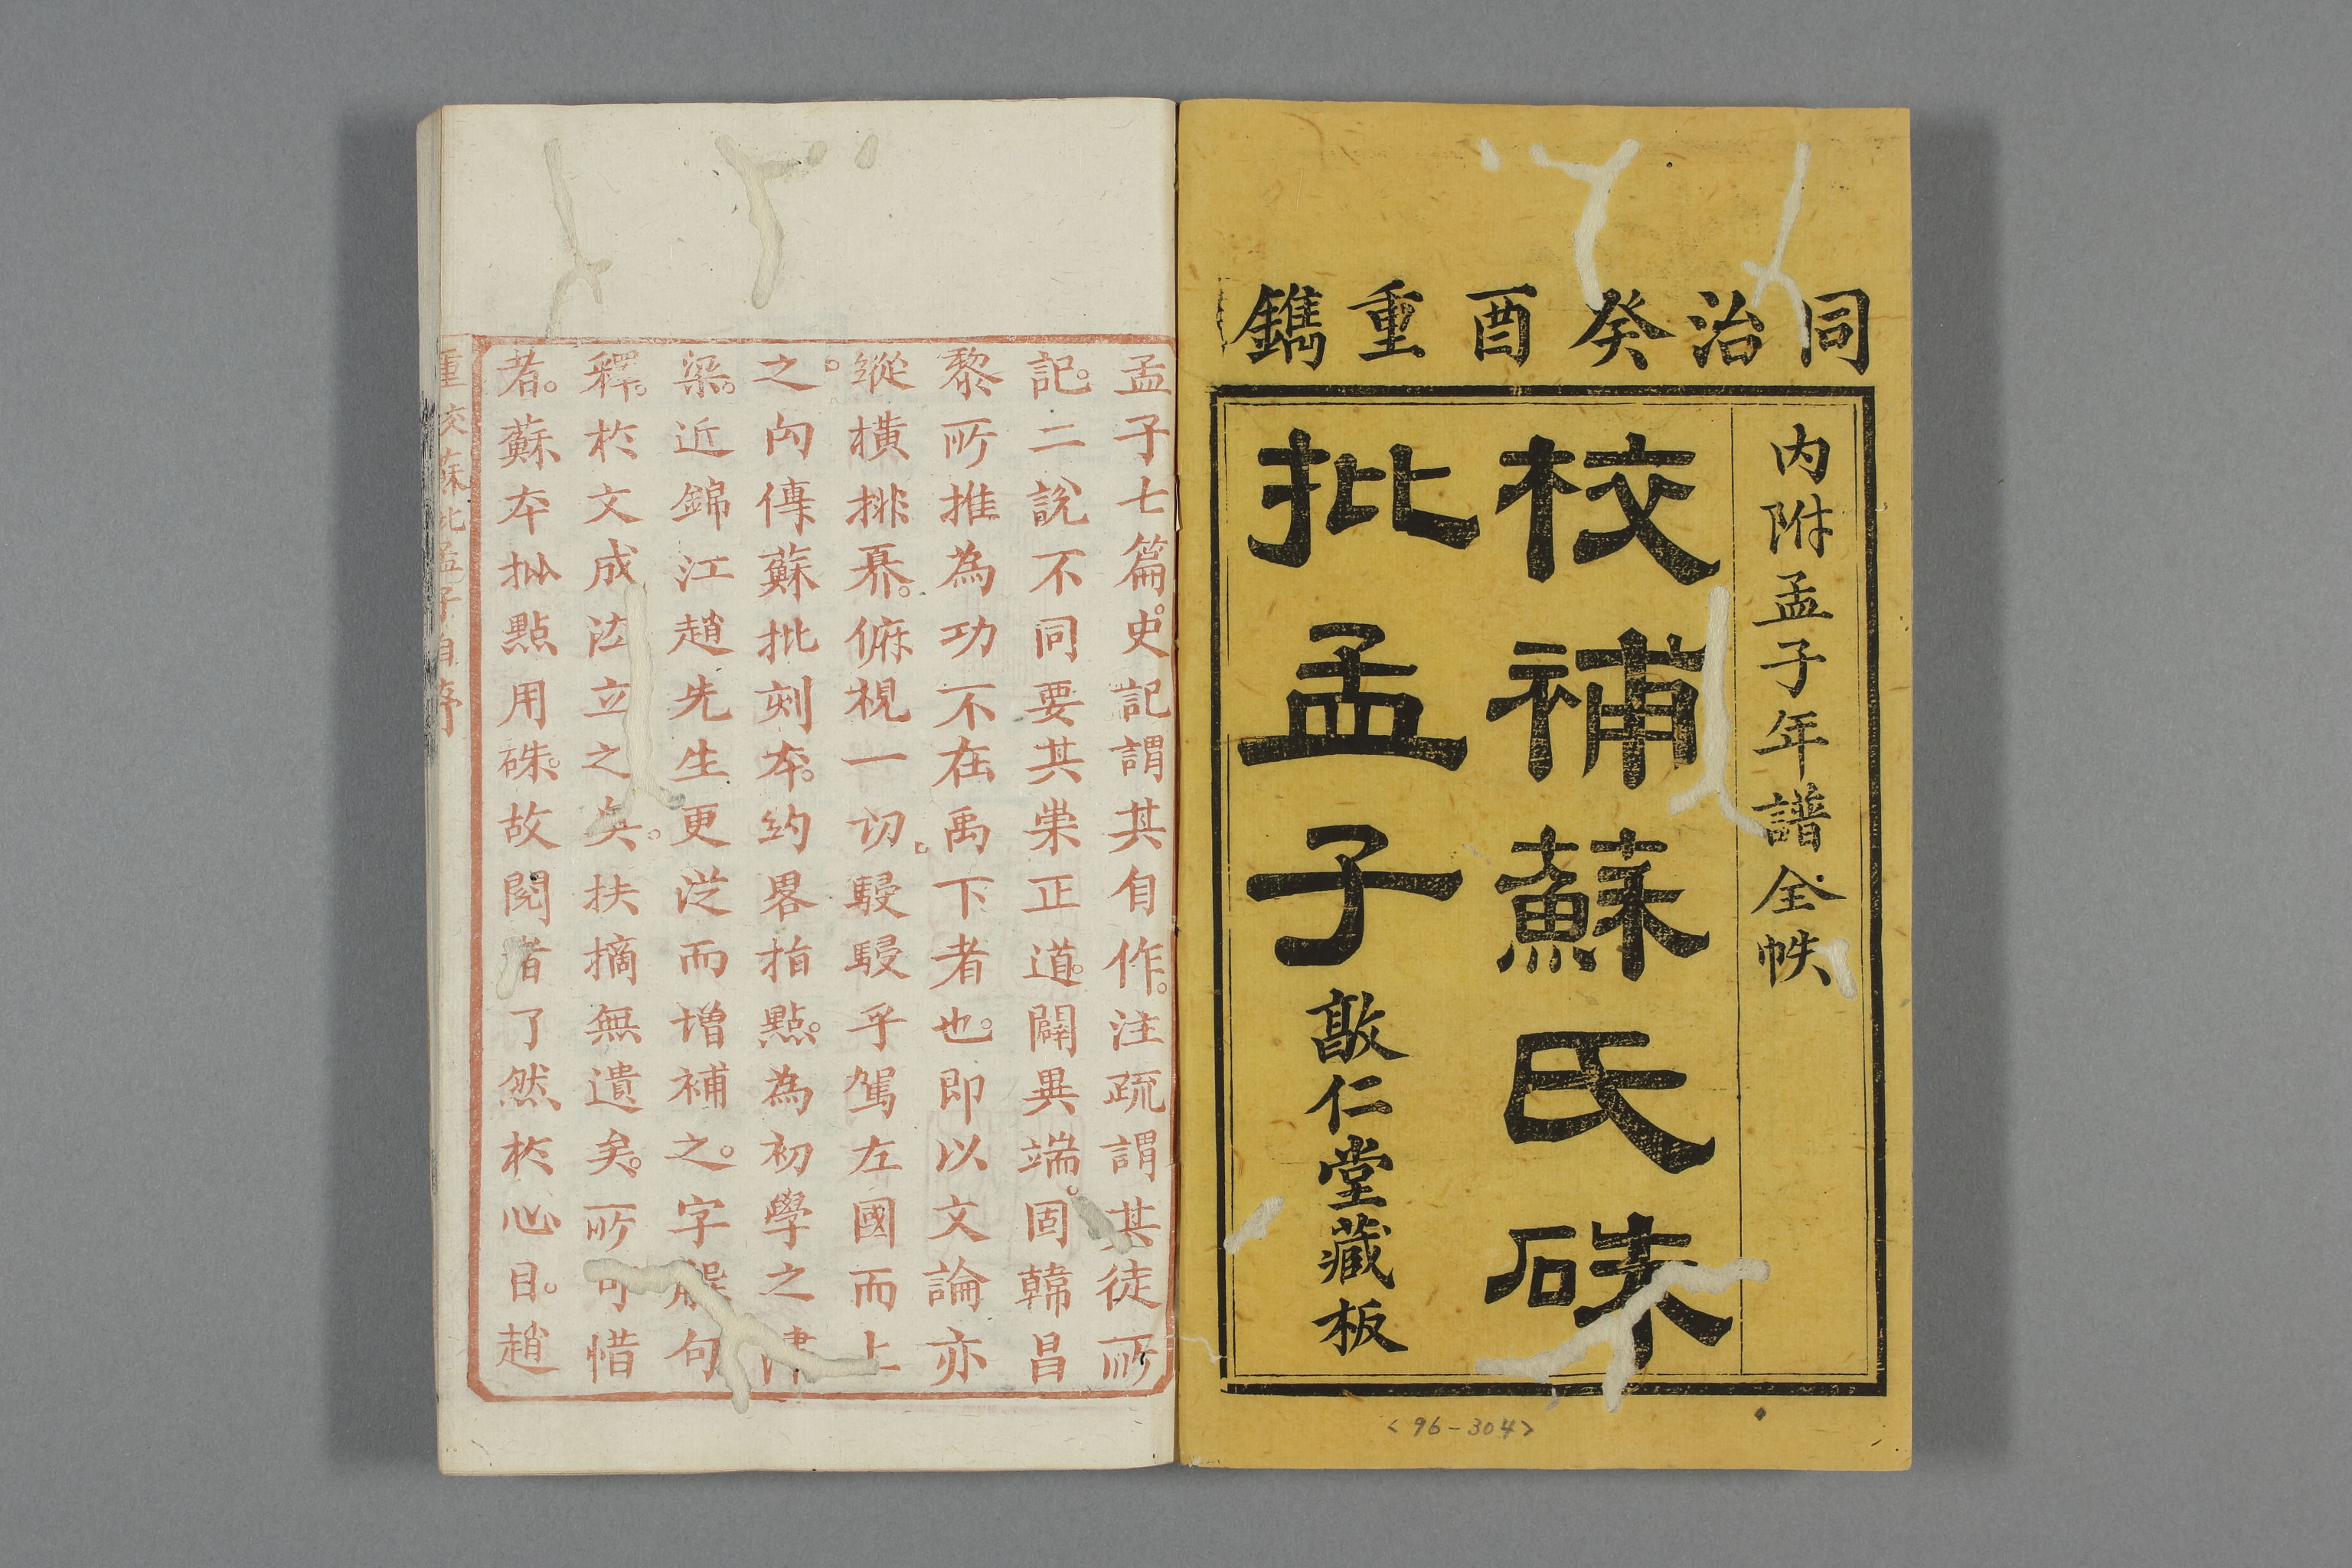 同治癸酉重鐫
內附孟子年譜全帙
校補蘇氏硃
批孟子
敦仁堂藏板
<96-304>
孟子七篇。史記謂其自作。注疏謂其徒所
記。二說不同要其崇正道。闢異端。固韓昌
黎所推為功不在禹下者也。即以文論亦
縱橫排奡。俯視一切。駸駸乎駕左國而上
之。向傳蘇批刻本。約畧指點。為初學之津
梁。近錦江趙先生更從而增補之。字解句
釋。於文成法立之矣。扶摘無遺矣。所可惜
者。蘇本批點用硃。故閱者了然於心目。趙
重校蘇批孟子自序